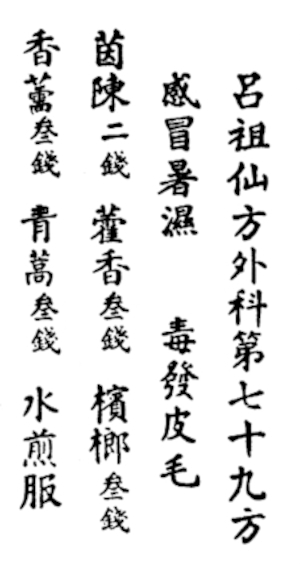 呂祖仙方外科第七十九方
感冒暑濕 毒發皮毛
茵陳二錢 藿香叄錢 檳榔叄錢
香薷叄錢 青蒿叄錢 水煎服